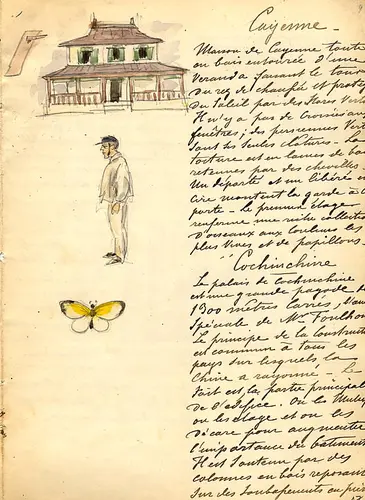 Cayenne
Maison de Cayenne toute
en bois entourée d'une
Veranda faisant le tour
du rez de chaussée et protég
du Soleil par des Stores Verts
Il n'y a pas de Croisées aux
fenêtres; des persiennes Vert
sont les Seules clôtures. La
toiture est en lames de bois
retenues par des chevilles
Un déporté et un libéré en
Cire montent la garde à la
porte - Le premier étage
renferme une riche collection
d'oiseaux aux Couleurs les
plus Vives et de papillons
Cochinchine
Le palais de Cochinchine
est une grande pagode de
1300 mètres Carrés,
Spéciale de Mr Foulhoux
Le principe de la Construction
est commun à tous les
pays sur lesquels la
Chine a rayonné. Le
Toit est la partie principale
de l'édifice. On les
on les étage et on les
décore pour augmenter
l'importance du bâtiment
Il est Soutenu par des
colonnes en bois reposant
Sur des Soubassements en pierre